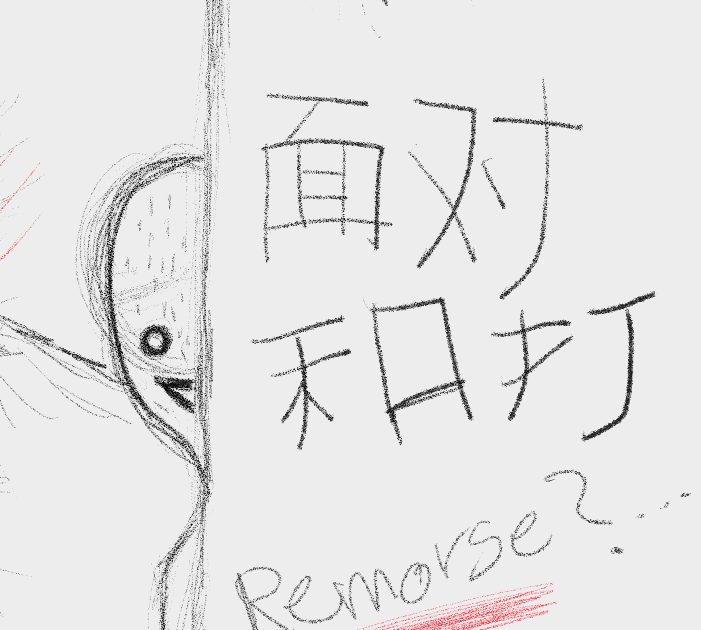 面对
和打
Remorse?...